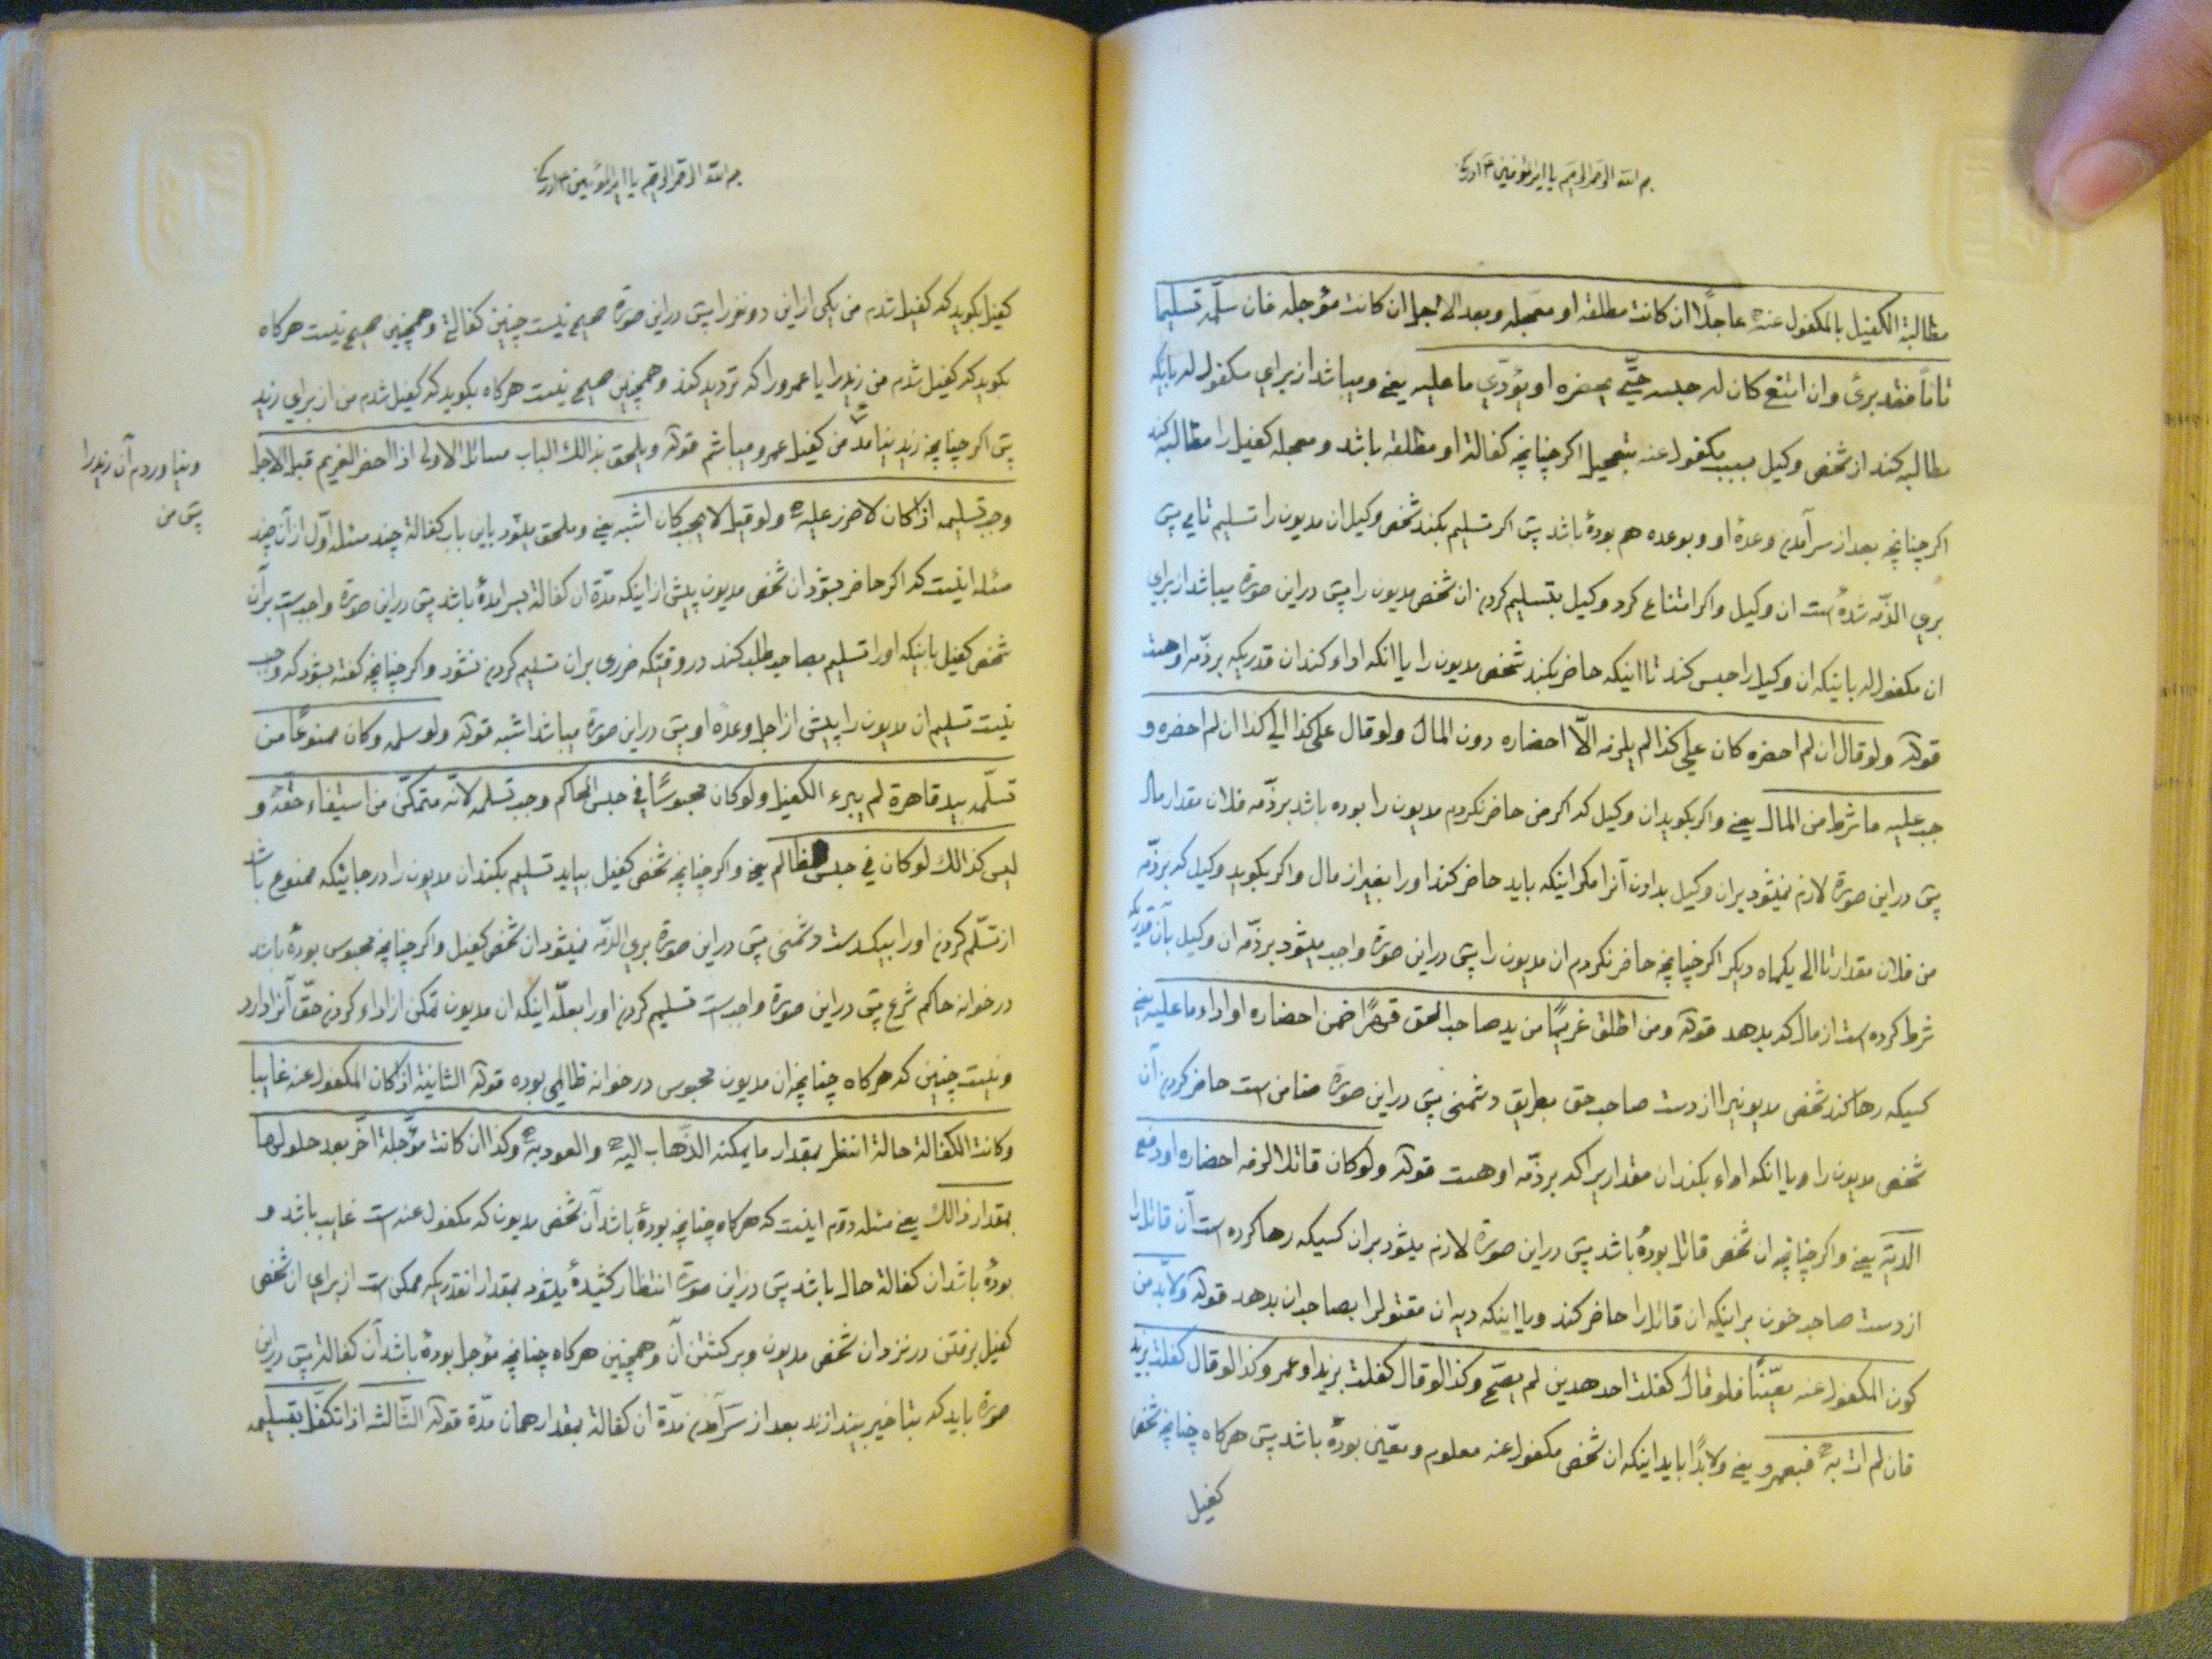 بسم الله الرحمن الرحیم یا امیرالمؤمنین ع ادرکنی
مطالبة الکفیل بالمکفول عنه عاجلًا ان کانت مطلقه او معجله و بعد الاجل ان کانت مؤجله فان سلّمه تسلیما
تامّاً فقد برئ وان امتنع کان له حبسه حتّی یحضره او یؤدّی ما علیه یعنی ومیباشد از برای مکفول له باینکه
مطالبه کند از شخص وکیل بسبب مکفول عنه بتعجیل اکر چنانچه کفالة او مطلقه باشد و معجله کفیل را مطالبه کند
اکر چنانچه بعد از سرآمدن وعدهٔ او و بوعده هم بودهٔ باشد پس اکر تسلیم بکند شخص وکیل ان مدیون را تسلیم تامی پس
بری الذّمه شدهٔ است ان وکیل و اکر امتناع کرد وکیل بتسلیم کردن ان شخص مدیون را پس دراین صورة میباشد از برای
ان مکفول له باینکه ان وکیل را حبس کند تا اینکه حاضر بکند شخص مدیون را یا انکه اداء کند ان قدریکه بر ذمّه او هست
قوله ولو قال ان لم احضره کان علی کذا لم یلزمه الّا احضاره دون المال ولو قال علی کذا الی کذا ان لم احضره و
جب علیه ما شرط من المال یعنی و اکر بکوید ان وکیل که اکر من حاضر نکردم مدیون را بوده باشد بر ذمّه فلان مقدار مال
پس دراین صورة لازم نمیشود بران وکیل بدادن آنرا مکر اینکه باید حاضر کند او را بغیر از مال و اکر بکوید وکیل که بر ذمّه
من فلان مقدار تا الی یکماه دیکر اکر چنانچه حاضر نکردم ان مدیون را پس دراین صورة واجب میشود بر ذمّه ان وکیل بآن قدریکه
شرط کرده است از مال که بدهد قوله ومن اطلق غریمًا من ید صاحب الحق قهرًا ضمن احضاره او اداء ما علیه یعنی
کسیکه رها کند شخص مدیونیرا از دست صاحب حق بطریق دشمنی پس دراین صورة ضامن است حاضر کردن آن
شخص مدیون را و یا انکه اداء بکند ان مقداریرا که بر ذمّه او هست قوله ولو کان قاتلا لزمه احضاره او دفع
الدیة یعنی و اکر چنانچه ان شخص قاتل بودهٔ باشد پس دراین صورة لازم میشود بران کسیکه رها کرده است آن قاتل را
از دست صاحب خون بر اینکه ان قاتل را حاضر کند و یا اینکه دیه ان مقتول را بصاحب ان بدهد قوله ولابدّ من
کون المکفول عنه معیّنًا فلو قال کفلت احد هذین لم یصحّ وکذا لو قال کفلت بزید او عمرو وکذا لو قال کفلت بزید
فان لم ات به فبعمرو یعنی ولابدًا باید اینکه ان شخص مکفول عنه معلوم و معیّن بودهٔ باشد پس هرکاه چنانچه شخص
کفیل
بسم الله الرحمن الرحیم یا امیرالمؤمنین ع ادرکنی
کفیل بکوید که کفیل شدم من یکی از این دو نفر را پس دراین صورة صحیح نیست چنین کفالة و همچنین صحیح نیست هرکاه
بکوید که کفیل شدم من زید را یا عمرو را که تردید کند و همچنین صحیح نیست هرکاه بکوید که کفیل شدم من از برای زید
پس اکر چنانچه زید نیامد من کفیل عمرو میباشم قوله ویلحق بذالک الباب مسائل الاولی اذا احضر الغریم قبل الاجل
ونیاوردم آن زید را
پس من
وجب تسلیمه اذا کان لاضرر علیه ولو قیل لایجب کان اشبه یعنی و ملحق میشود باین باب کفالة چند مسئله اوّل از آن چند
مسئله اینست که اکر حاضر بشود ان شخص مدیون پیش از اینکه مدّة ان کفالة بسر امدهٔ باشد پس دراین صورة واجبست بر آن
شخص کفیل باینکه او را تسلیم بصاحب طلب کند در وقتیکه ضرری بران تسلیم کردن نشود و اکر چنانچه کفته بشود که واجب
نیست تسلیم ان مدیون را پیش از اجل وعدّه او پس دراین صورة میباشد اشبه قوله ولو سلمه وکان ممنوعًا من
تسلّمه بید قاهرة لم یبرء الکفیل ولو کان محبوسًا فی حبس الحاکم وجب تسلمه لانّه متمکّن من استیفاء حقّه و
لیس کذالک لو کان فی حبس ظالم یعنی و اکر چنانچه شخص کفیل بیاید تسلیم بکند ان مدیون را در جائیکه ممنوع باشد
از تسلّم کردن او را بیکدست دشمنی پس دراین صورة بری الذّمّه نمیشود ان شخص کفیل و اکر چنانچه محبوس بودهٔ باشد
درخوانه حاکم شرع پس دراین صورة واجبست تسلیم کردن او را بعلّه اینکه ان مدیون تمکن از اداء کردن حقّ آنرا دارد
ونیست چنین که هرکاه چنانچه ان مدیون محبوس درخوانه ظالمی بوده قوله الثانیة اذا کان المکفول عنه غایبا
وکانت الکفالة حالة انتظر بمقدار ما یمکنه الذّهاب الیه والعود به وکذا ان کانت مؤجّلة اخّر بعد حلولها
بمقدار ذالک یعنی مسئله دوّم اینست که هرکاه چنانچه بودهٔ باشد آن شخص مدیون که مکفول عنه است غایب باشد و
بودهٔ باشد ان کفالة حال باشد پس دراین صورة انتظار کشیدهٔ میشود بمقدار انقدریکه ممکن است از برای ان شخص
کفیل برفتن در نزد ان شخص مدیون و برکشتن آن و همچنین هرکاه چنانچه مؤجل بودهٔ باشد آن کفالة پس دراین
صورة باید که بتاخیر بیندازند بعد از سرآمدن مدّة ان کفالة بمقدار همان مدّة قوله الثّالثه اذا تکفّل بتسلیمه